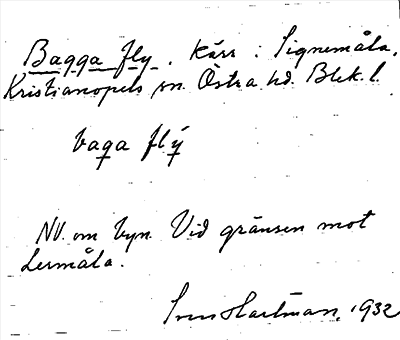 Bagga fly. Kärr: Signemåla,
Kristianopels sn. Östra hd. Blek. l.
baga flȳ
NV. om byn. Vid gränsen mot
Lermåla.
Sven Hartman, 1932